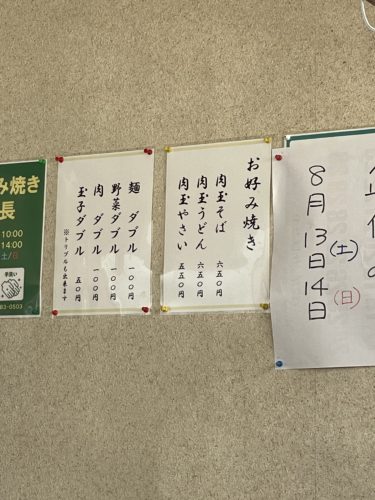 み焼き
長
10:00
14:00
土/日
手洗い
83-0503
麺 ダブル 一〇〇円
野菜ダブル 一〇〇円
肉 ダブル 一〇〇円
玉子ダブル 五〇円
※トリプルも出来ます
お好み焼き
肉玉そば 六五〇円
肉玉うどん 六五〇円
肉玉やさい 五五〇円
8月13日(土)
14日(日)